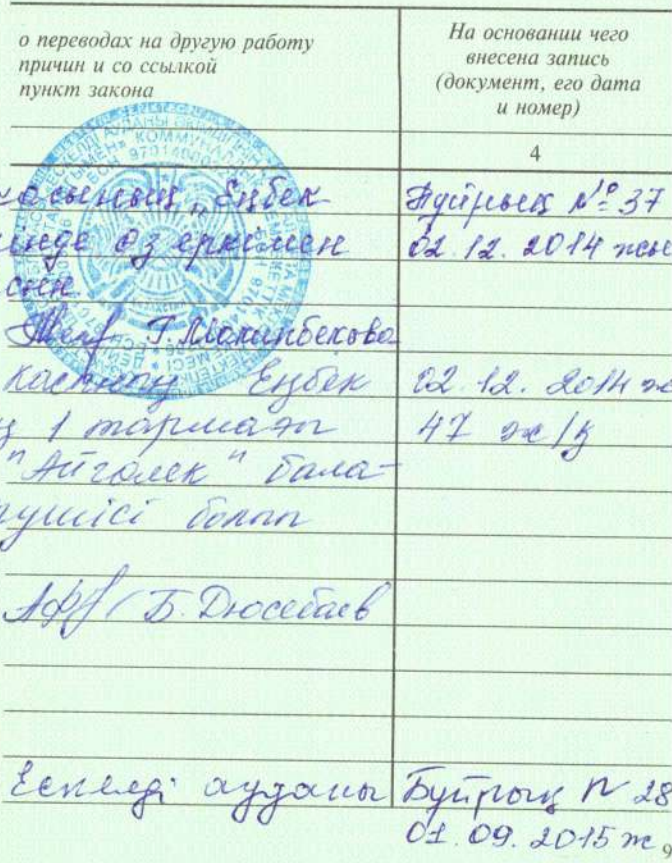 о переводах на другую работу
причин и со ссылкой
пункт закона
На основании чего
внесена запись
(документ, его дата
и номер)
4
касының Еңбек
Бұйрық № 37
інде өз еркімен
02.12.2014 жыл
Г. Мокинбекова
Еңбек
02.12.2014 ж
ң 1 тармағы
47 ж/қ
"Айгөлек" бала-
ушісі болып
Б. Дюсебаев
Ескелді ауданы
Бұйрық N 28
01.09.2015 ж
9